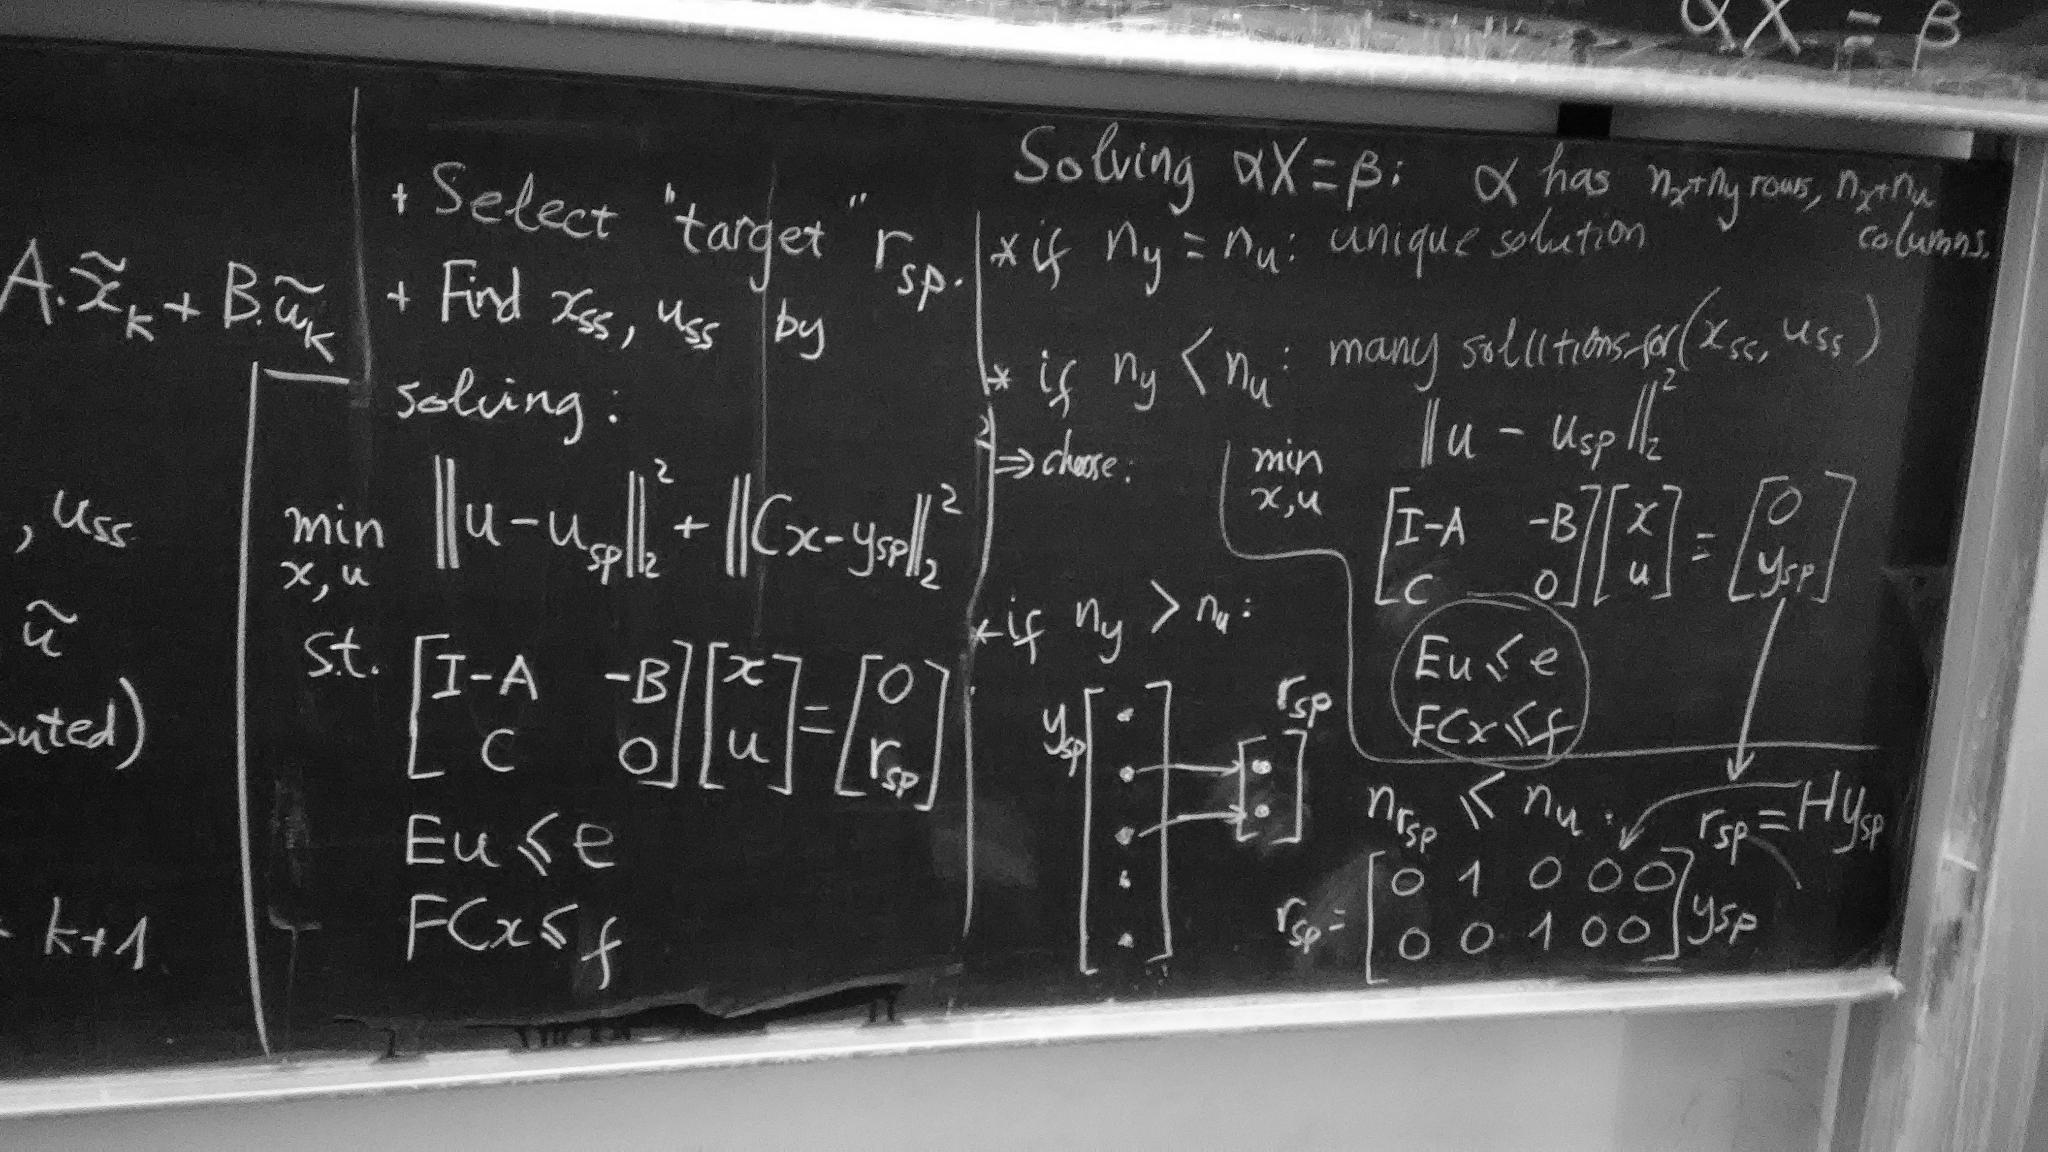 αX = β
A.x̃_k + B.ũ_k
, u_ss
ũ
outed)
k+1
+ Select "target" r_sp.
+ Find x_ss, u_ss by
solving:
min ‖u-u_sp‖₂² + ‖Cx-y_sp‖₂²
x, u
s.t. [I-A -B] [x] = [0]
[C 0] [u] [r_sp]
Eu ⩽ e
FCx ⩽ f
Solving αX = β: α has n_x+n_y rows, n_x+n_u
columns.
* if n_y = n_u: unique solution
* if n_y < n_u: many solutions for (x_ss, u_ss)
⇒ choose: min ‖u - u_sp‖₂²
x, u
[I-A -B] [x] = [0]
[C 0] [u] [y_sp]
Eu ⩽ e
FCx ⩽ f
* if n_y > n_u:
y_sp [ ] r_sp [ ]
n_r_sp ⩽ n_u: r_sp = Hy_sp
r_sp = [0 1 0 0 0] y_sp
[0 0 1 0 0]